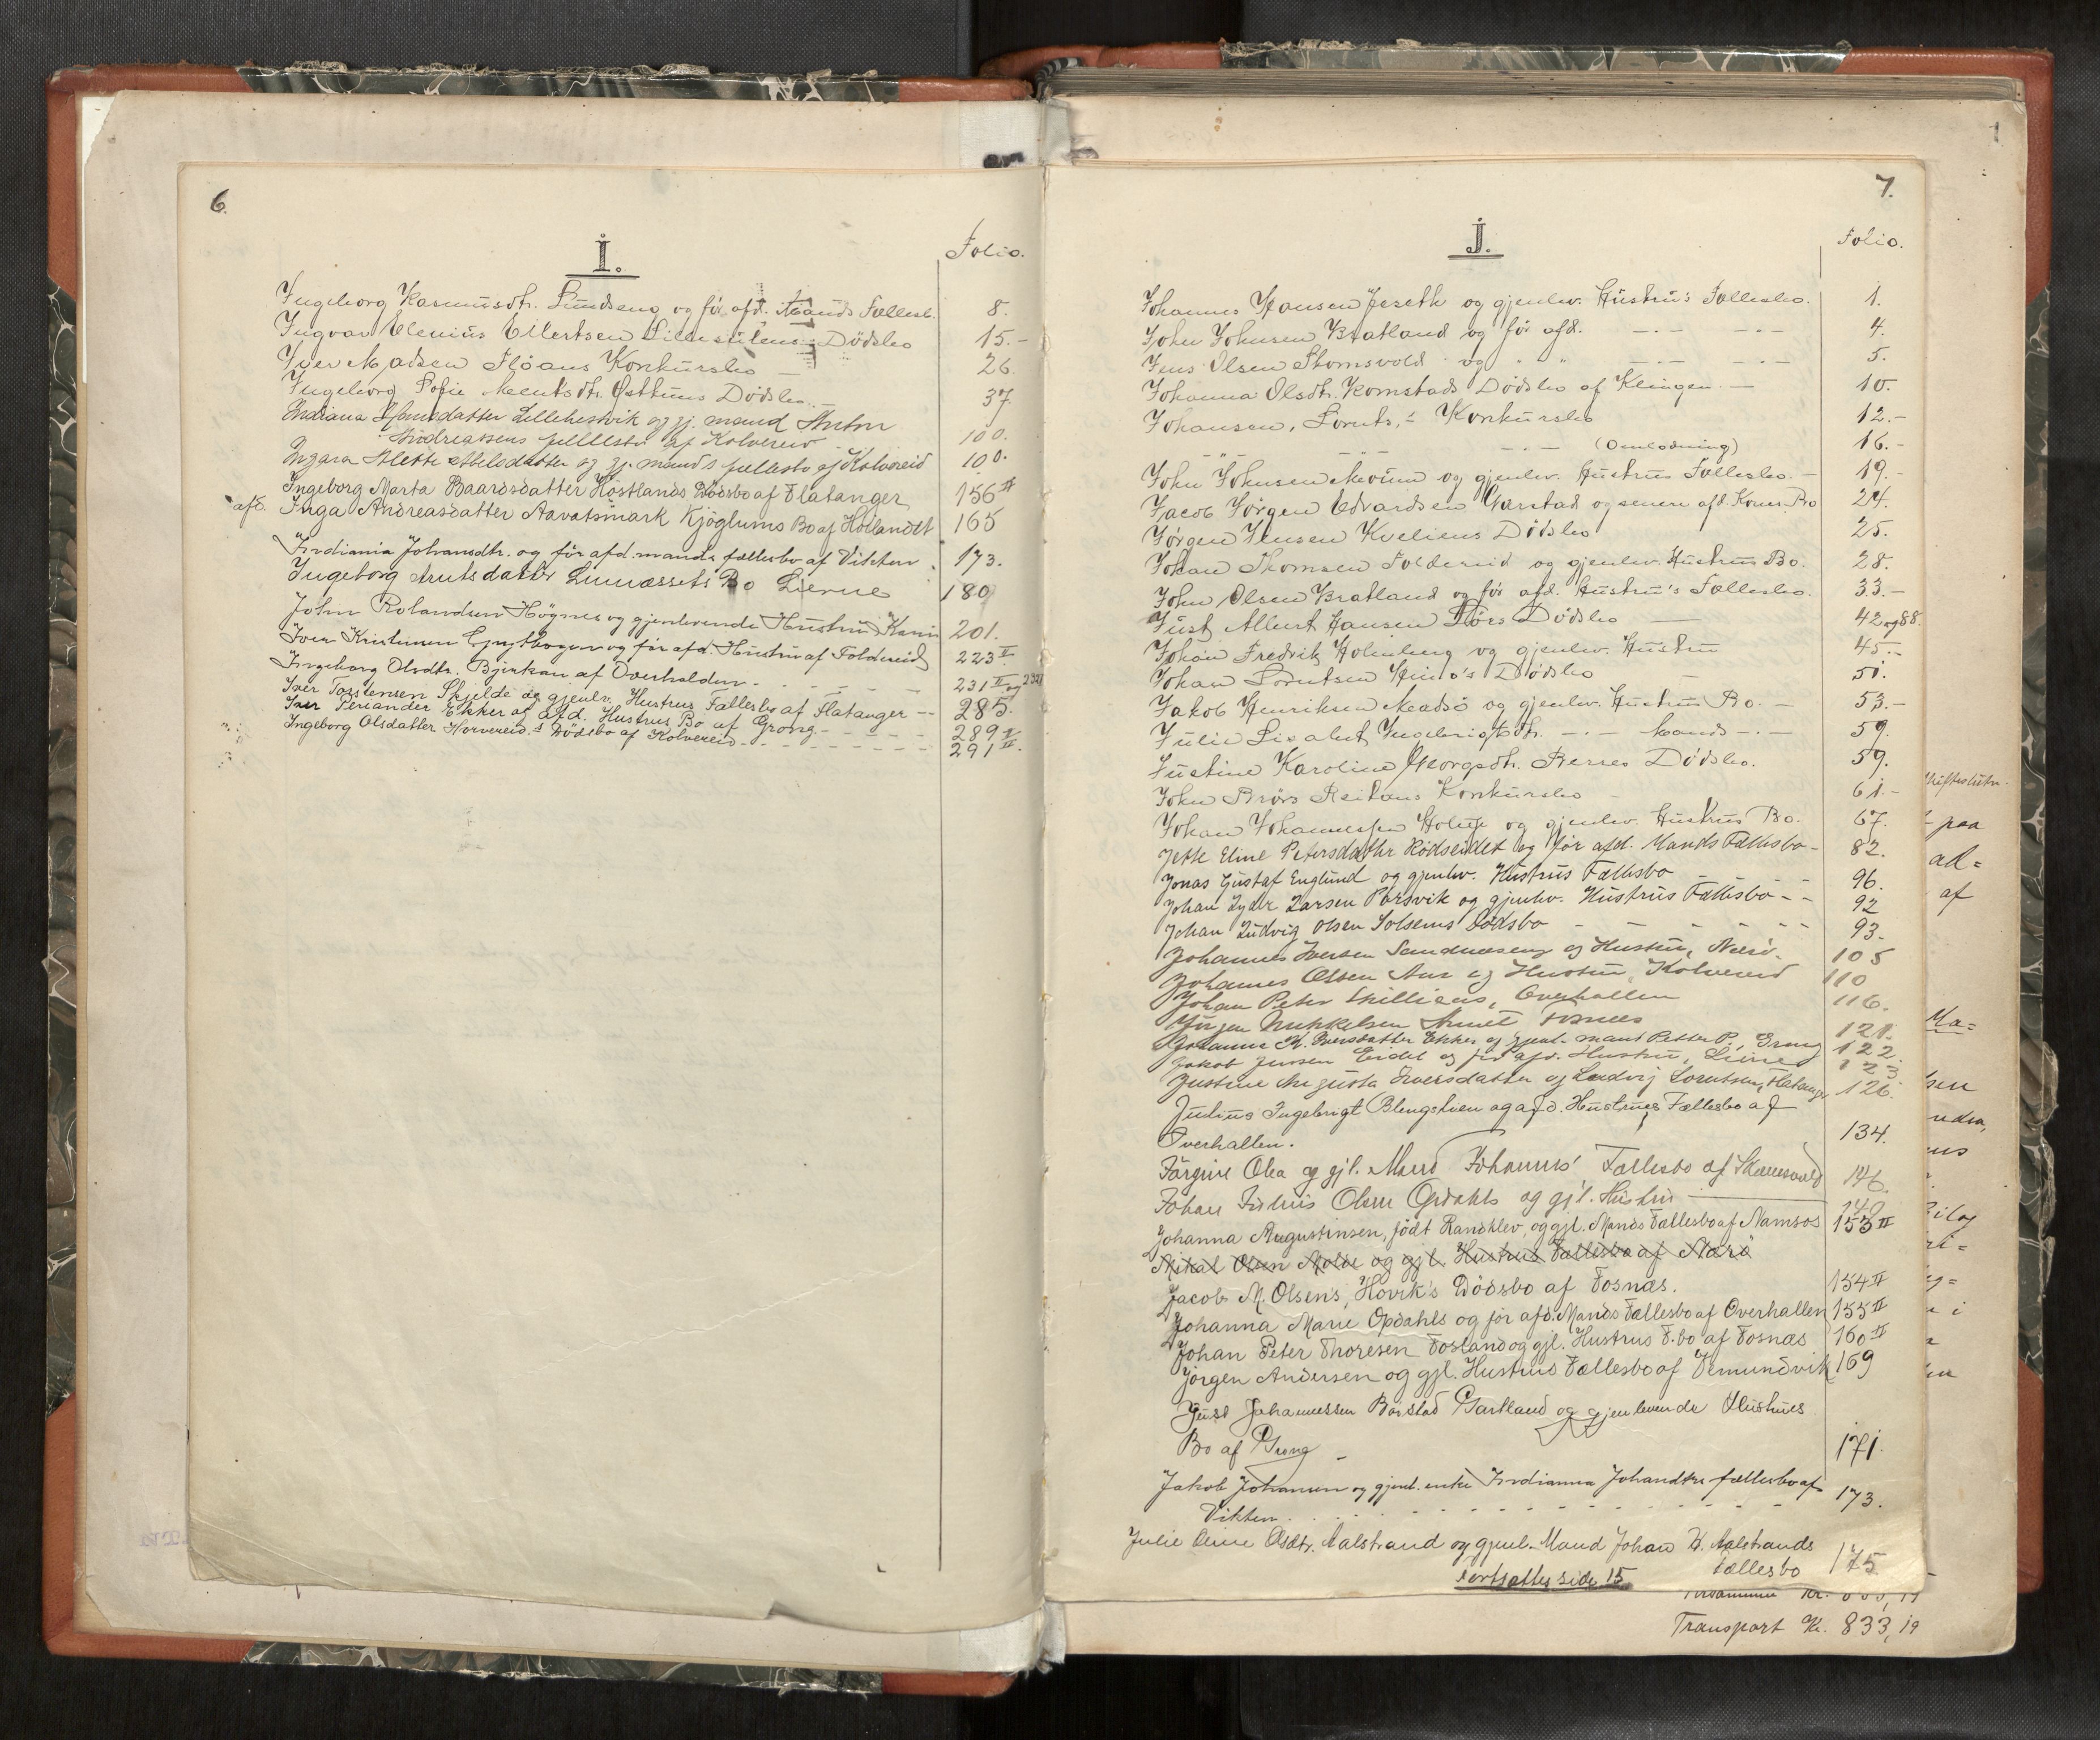 6.
I.
Folio.
Ingeborg Rasmusdtr. Sundseng og før afd. Mands Fællesb. 8.
Ingvar Elenius Ellertsen Dödsbo 15.-
Iver Madsen Flöans Konkursbo 26.
Ingeborg Sofie Dödsbo. 37.
Indiana Lillehestvik og gj. mand Anton
Andreassens fællesbo af Kolvereid 100.
Ingara Alette Abelsdatter og gj. mands fællesbo af Kolvereid 100.
Ingeborg Marta Baardsdatter Höstlands Dödsbo af Flatanger 156 II
afd. Inga Andreasdatter Aavatsmark Kjöglums Bo af Höilandet 165
Indiania Johansdtr. og før afd. mands fællesbo af Vikten 173.
Ingeborg Arntsdatter Bo Lierne 180
John Rolandsen Högnes og gjenlevende Hustru Karin 201.
Iver Kristensen og før afd. Hustru af Foldereid 223 II
Ingeborg Olsdtr. Bjerkan af Overhalden 231 II og 232
Iver Torstensen Skjelde og gjenlv. Hustrus Fællesbo af Flatanger 285.
Iver Periander Ekker og afd. Hustrus Bo af Grong 289 II
Ingeborg Olsdatter Horvereid's Dödsbo af Kolvereid 291 II
7.
J.
Folio.
Johannes Hansen Jeseth og gjenlev. Hustru's Fællesbo. 1.
John Johnsen Bratland og før afd. -.- -.- 4.
Jens Olsen Thomsvold og " " -.- -.- 5.
Johanna Olsdtr. Komstads Dödsbo af Klingen 10.
Johansen, Lornts, - Konkursbo 12.-
-"- -"- -.- (Omlodning) 16.-
John Johnsen Moum og gjenlev. Hustrus Fællesbo. 19.-
Jacob Jørgen Edvardsen Gerstad og senere afd. Kones Bo 24.
Jørgen Jensen Kveliens Dödsbo 25.
Johan Thomsen Foldereid og gjenlev. Hustrus Bo. 28.
John Olsen Bratland og før afd. Hustru's Fællesbo. 33.-
Just Albert Hansen Dödsbo 42 og 88.
Johan Fredrik Holmberg og gjenlev. Hustru 45.-
Johan Lorentsen Dödsbo 51.
Jakob Henriksen Madsö og gjenlev. Hustrus Bo. 53.-
Julie Lisabet Ingebrigtsdtr. -.- Mands -.- 59.
Justine Karoline Georgsdtr. Berres Dödsbo. 59.
John Brörs Reitans Konkursbo 61.-
Johan Johannessen Holup og gjenlev. Hustrus Bo. 67.
Jette Eline Petersdatter Rödseidet og før afd. Mands Fællesbo 82.
Jonas Gustaf Englund og gjenlev. Hustrus Fællesbo 96.
Johan Zyder Larsen Parsvik og gjenlev. Hustrus Fællesbo 92
Johan Ludvig Olsen Solsems Dödsbo 93.
Johannes Iversen Sandnæseng og Hustru, Nærö. 105
Johannes Olsen Aur og Hustru, Kolvereid 110
Johan Peter Skillieus, Overhallen 116.
Jörgen Mikkelsen Fosnæs 121.
Johanne K. Iversdatter Ekker og gjenl. mand Petter P, Grong 122.
Jakob Jensen Eidet og før afd. Hustru, Lierne 123
Justine Augusta Iversdatter og Ludvig Lorntsen, Flatanger 126.
Julius Ingebrigt Blengslien og afd. Hustrues Fællesbo af
Overhallen. 134.
Jörgine Olea og gjl. Mand Johannes' Fællesbo af 146.
Johan Julius Olsen Opdahls og gjl. Hustru 149
Johanna Augustinsen, født Randklev, og gjl. Mands Fællesbo af Namsos 153 II
Mikal Olsen Molde og gjl. Hustrus Fællesbo af Nærö
Jacob M. Olsens, Hovik's Dödsbo af Fosnæs. 154 II
Johanna Marie Opdahls og før afd. Mands Fællesbo af Overhallen 155 II
Johan Peter Thoresen Fosland og gjl. Hustrus F.bo af Fosnæs 160 II
Jörgen Andersen og gjl. Hustrus Fællesbo af Vemundvik 169
Just Johannessen Barstad Gartland og gjenlevende Hustrues
Bo af Grong 171.
Jakob Johansen og gjenl. enke Indianna Johansdtrs fællesbo af
Vikten 173.
Julie Oline Olsdtr. Aalstrand og gjenl. Mand Johan H. Aalstrands
Fællesbo 175
Fortsættes side 15
1
paa
ad=
af
Ma=
Transport Kr. 833,19